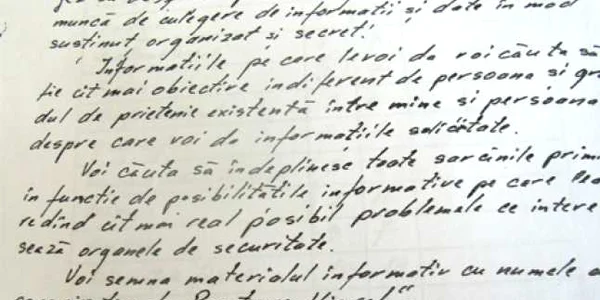 muncă de culegere de informatii și date în mod
sustinut, organizat și secret.
Informatiile pe care le voi da voi căuta să
fie cît mai obiective indiferent de persoana si gra
dul de prietenie existentă între mine si persoana
despre care voi da informatiile solicitate.
Voi căuta să îndeplinesc toate sarcinile primi
in functie de posibilitătile informative pe care le a
redind cît mai real posibil problemele ce intere
sează organele de securitate.
Voi semna materialul informativ cu numele